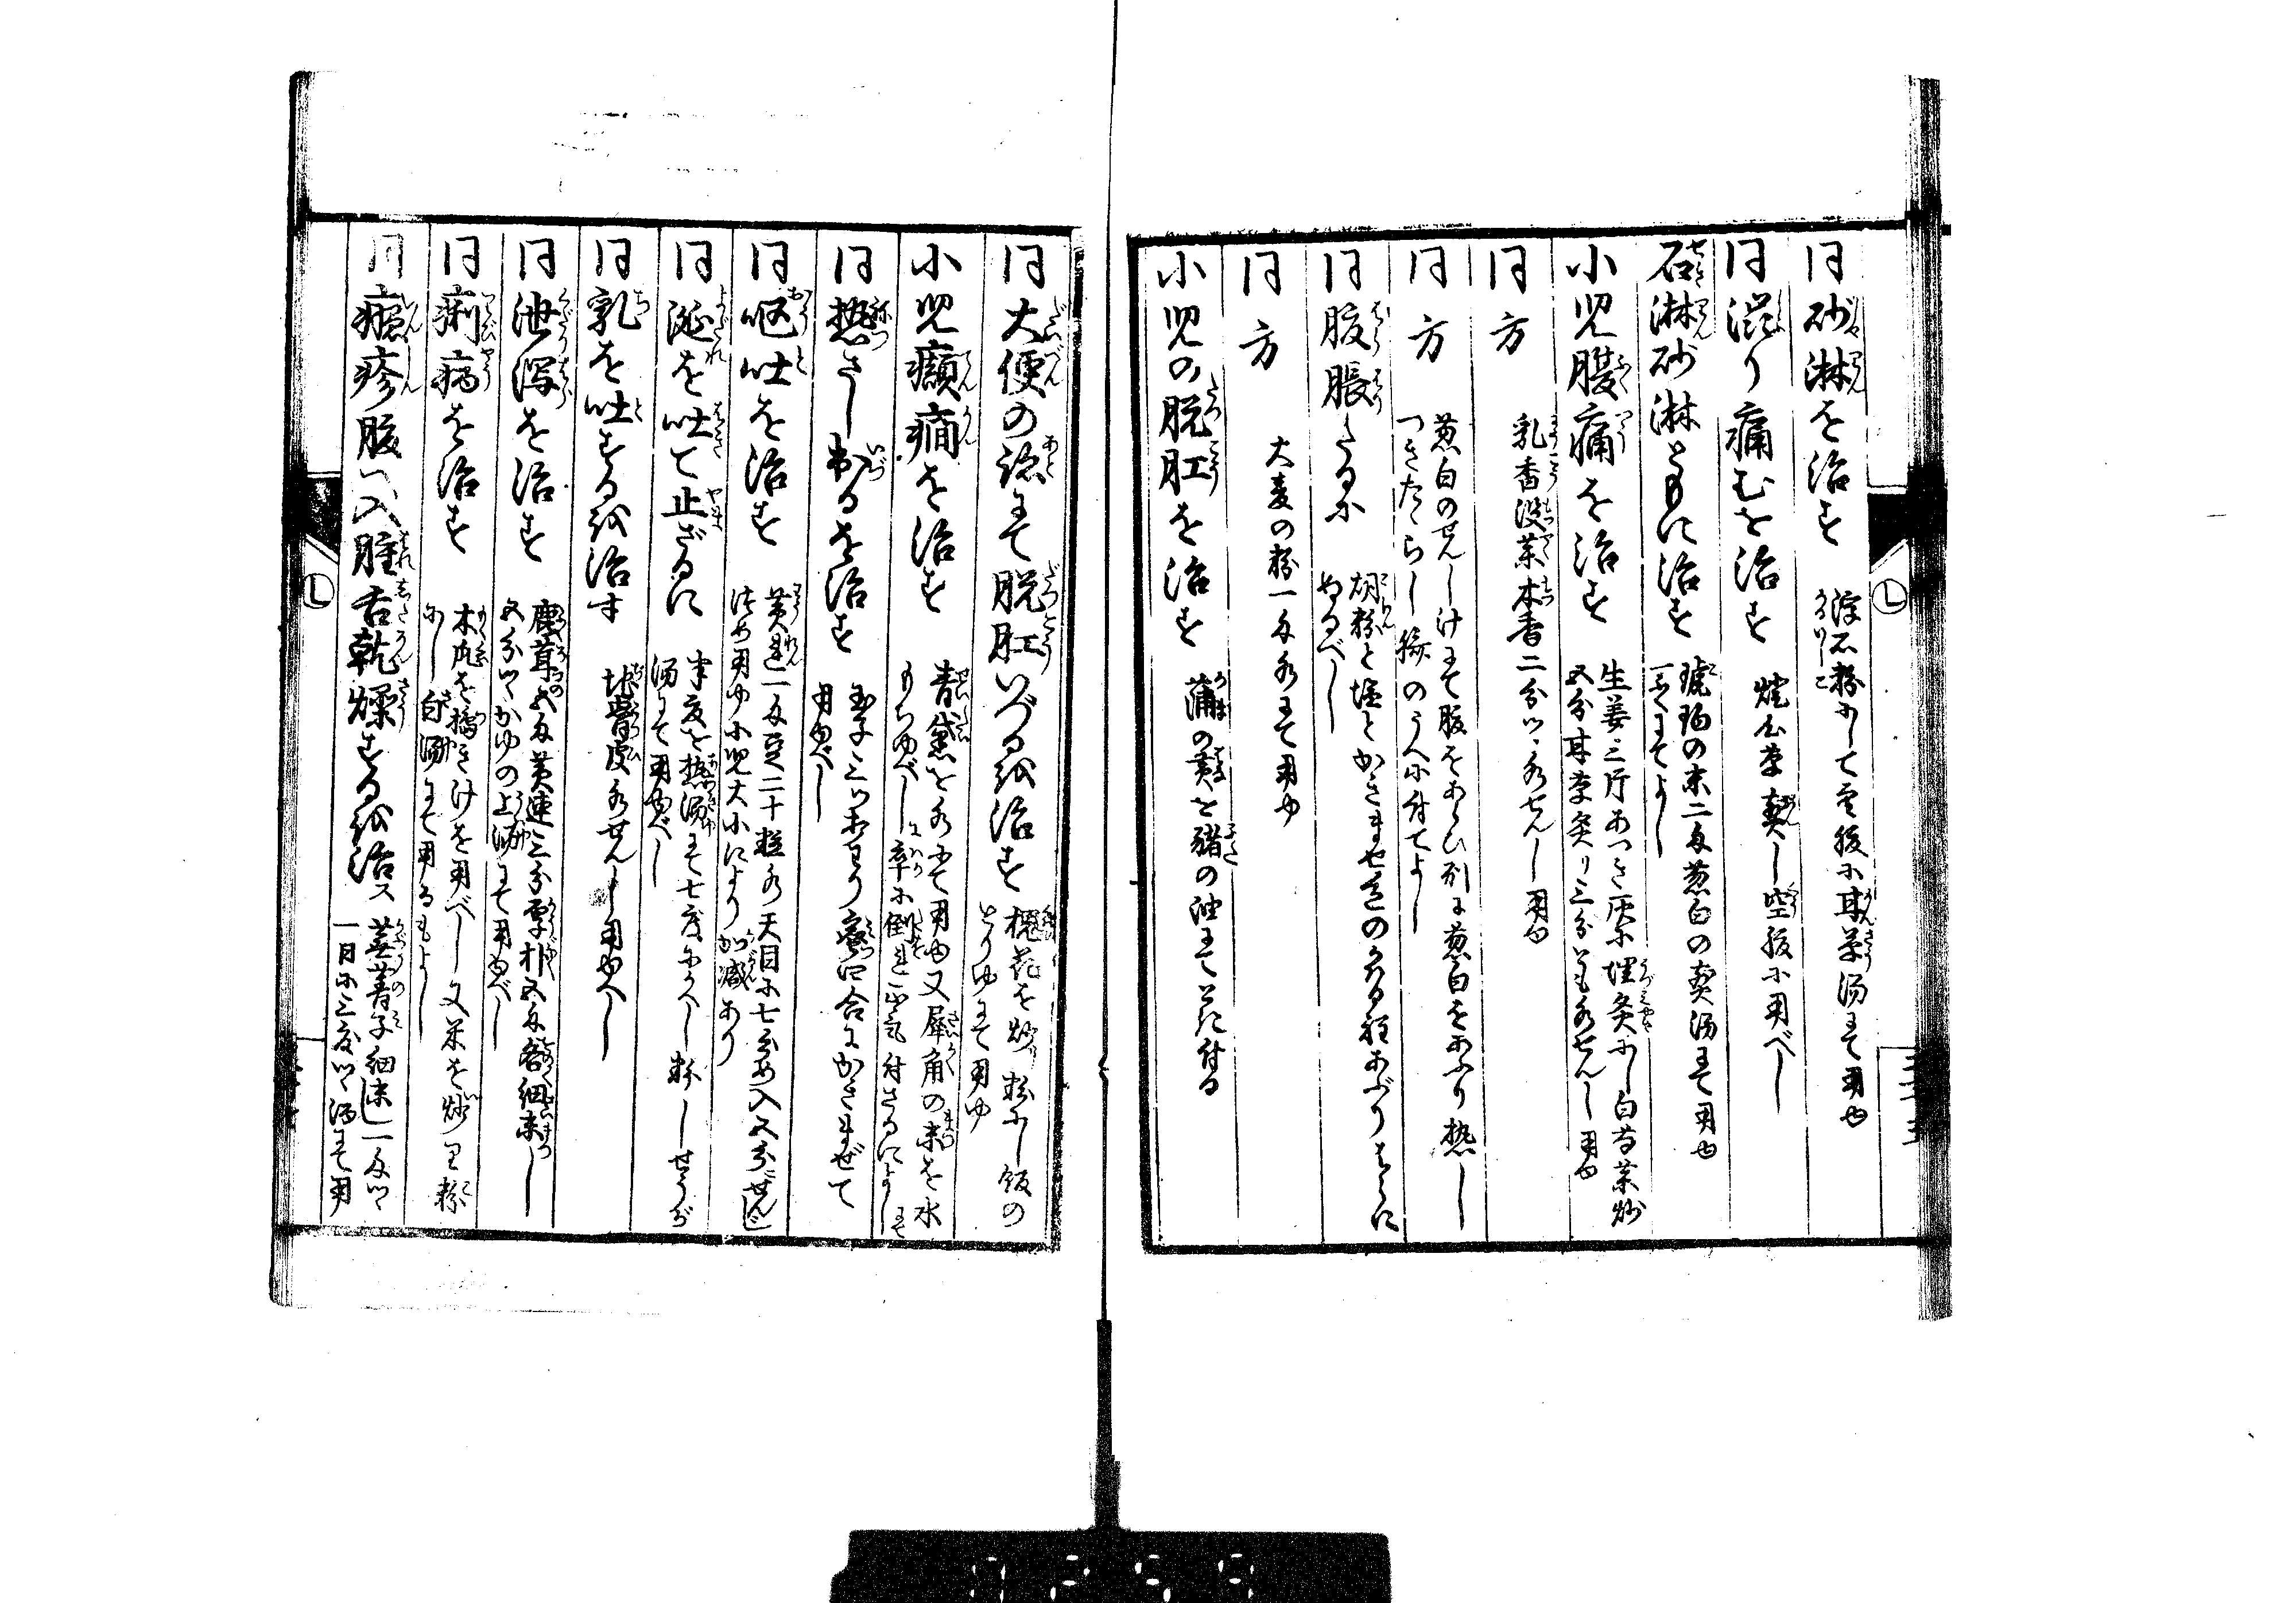 同砂淋を治す
浮石粉にして空腹に甘草湯にて用ゆ
かるいしこ
同澁り痛むを治す
煙艸葉煎し空腹に用べし
石淋砂淋ともに治す
琥珀の末二匁葱白の煎湯にて用ゆ
一ふくにてよし
小児腹痛を治す
生姜三片あつき灰に埋炙にし白芍薬炒
五分甘草炙り三分いも水せんし用ゆ
同方
乳香没薬木香二分ツヽ水せんし用ゆ
同方
葱白のせんし汁にて腹をあらひ別に葱白をあふり熱し
つきたゝらし臍のうへに付てよし
同腹脹したるに
胡粉と塩とかきまぜ色のかはる程あぶりはらに
ぬるべし
同方
大麦の粉一匁水にて用ゆ
小児の脱肛を治す
蒲の黄を猪の油にてとき付る
同大便の跡にて脱肛いづる を治す
槐花を炒り粉にし飯の
とりゆにて用ゆ
小児癲癇を治す
青黛を水にて用ゆ又犀角の末を水にて
もちゆべし又卒に倒れ正気付さるによし
同熱さし出るを治す
玉子三ツあまり蜜四合にかきまぜて
用ゆべし
同嘔吐を治す
黄連一匁豆二十粒水天目に七分め入五分にせんじ
つめ用ゆ小児大小により加減あり
同涎を吐て止ざるに
半夏を熱湯にて七度にかへし粉しせうが
湯にて用ゆべし
同乳を吐する を治す
地骨皮水せんし用ゆべし
同泄瀉を治す
鹿茸五匁黄連三分厚朴五分各細末し
五分ツヽかゆの上湯にて用ゆべし
同痢病を治す
木瓜を搗き汁を用べし又米を炒り粉
にし白湯にて用るもよし
同癮疹腹へ入腫舌乾燥する を治ス
蕪菁子細末し一匁ツヽ
一日に三度ツヽ酒にて用